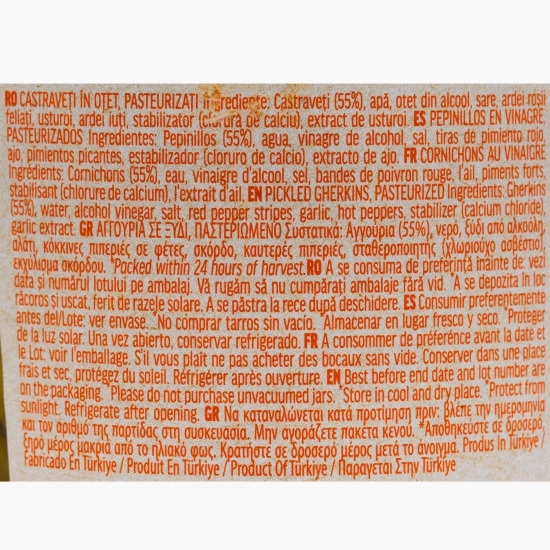 RO CASTRAVEȚI ÎN OȚET, PASTEURIZAȚI Ingrediente: Castraveți (55%), apă, oțet din alcool, sare, ardei roșii
feliați, usturoi, ardei iuți, stabilizator (clorura de calciu), extract de usturoi. ES PEPINILLOS EN VINAGRE,
PASTEURIZADOS Ingredientes: Pepinillos (55%), agua, vinagre de alcohol, sal, tiras de pimiento rojo,
ajo, pimientos picantes, estabilizador (cloruro de calcio), extracto de ajo. FR CORNICHONS AU VINAIGRE
Ingrédients: Cornichons (55%), eau, vinaigre d'alcool, sel, bandes de poivron rouge, l'ail, piments forts,
stabilisant (chlorure de calcium), l'extrait d'ail. EN PICKLED GHERKINS, PASTEURIZED Ingredients: Gherkins
(55%), water, alcohol vinegar, salt, red pepper stripes, garlic, hot peppers, stabilizer (calcium chloride),
garlic extract. GR ΑΓΓΟΥΡΙΑ ΣΕ ΞΥΔΙ, ΠΑΣΤΕΡΙΩΜΕΝΟ Συστατικά: Αγγούρια (55%), νερό, ξύδι από αλκοόλη,
αλάτι, κόκκινες πιπεριές σε φέτες, σκόρδο, καυτερές πιπεριές, σταθεροποιητής (χλωριούχο ασβέστιο),
εκχύλισμα σκόρδου. *Packed within 24 hours of harvest. RO A se consuma de preferință înainte de: vezi
data și numărul lotului pe ambalaj. Vă rugăm să nu cumpărați ambalaje fără vid. *A se depozita în loc
răcoros și uscat, ferit de razele solare. A se păstra la rece după deschidere. ES Consumir preferentemente
antes del/Lote: ver envase. *No comprar tarros sin vacío. *Almacenar en lugar fresco y seco. *Proteger
de la luz solar. Una vez abierto, conservar refrigerado. FR A consommer de préférence avant la date et
le Lot: voir l'emballage. S'il vous plaît ne pas acheter des bocaux sans vide. Conserver dans une place
frais et sec, protégez du soleil. Réfrigérer après ouverture. EN Best before end date and lot number are
on the packaging. *Please do not purchase unvacuumed jars. *Store in cool and dry place. *Protect from
sunlight. Refrigerate after opening. GR Να καταναλώνεται κατά προτίμηση πριν: βλέπε την ημερομηνία
και τον αριθμό της παρτίδας στη συσκευασία. Μην αγοράζετε πακέτα κενού. *Αποθηκεύστε σε δροσερό,
ξηρό μέρος μακριά από το ηλιακό φως. Κρατήστε σε δροσερό μέρος μετά το άνοιγμα. Produs In Türkiye /
Fabricado En Türkiye / Produit En Türkiye / Product Of Türkiye / Παράγεται Στην Türkiye